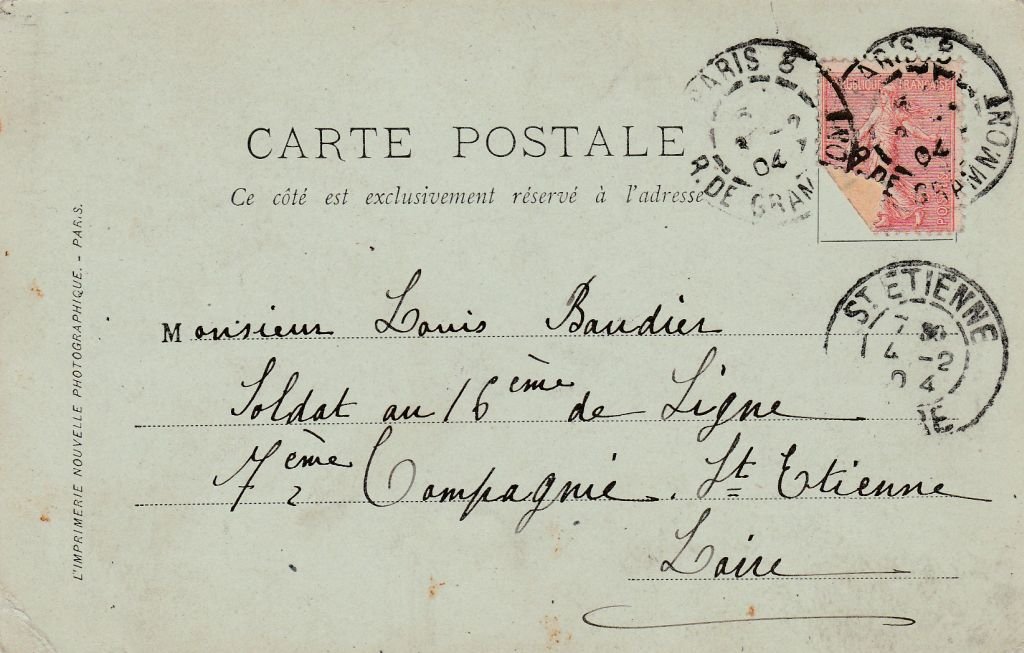 PARIS 8
R. DE GRAMMONT
04
PARIS 8
R. DE GRAMMONT
04
FRANÇAISE
CARTE POSTALE
Ce côté est exclusivement réservé à l'adresse
ST ETIENNE
7
4 -2
04
Monsieur Louis Baudier
Soldat au 16ème de Ligne
7ème Compagnie. St Etienne
Loire
L'IMPRIMERIE NOUVELLE PHOTOGRAPHIQUE. - PARIS.